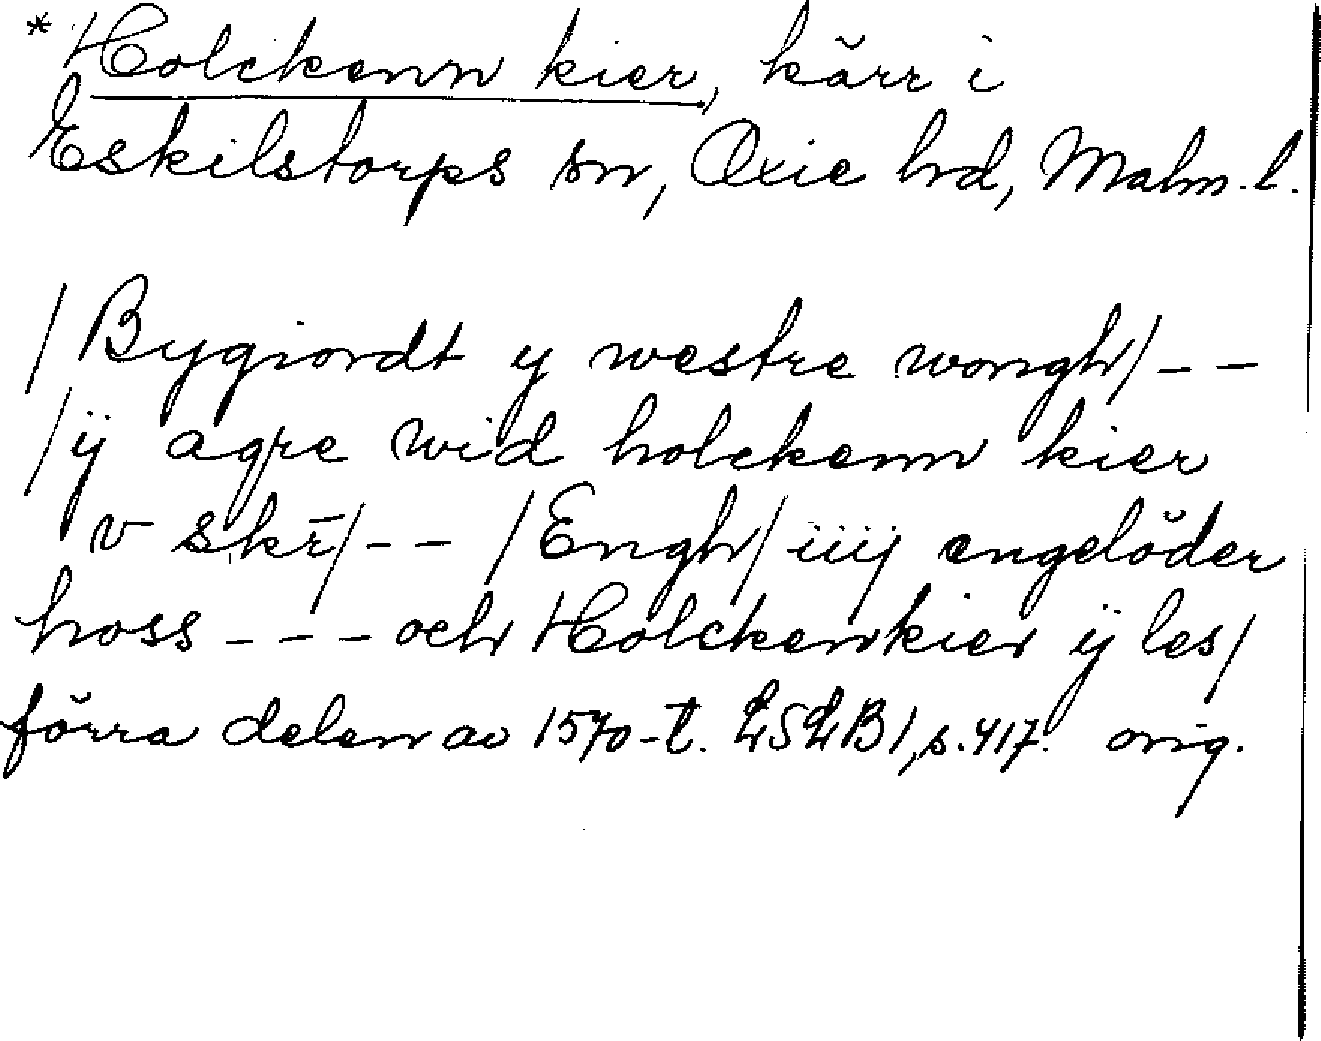 *Holckenn kier, kärr i
Eskilstorps sn, Oxie hd, Malm. l.
/Bygiordt y westre wongh/ - -
/ij agre wid holckenn kier
v skr̄/ - - /Engh/ iiij engelöder
hoss - - - och Holckenkier ij les/
förra delen av 1570-t. LSLB 1, s. 417. orig.